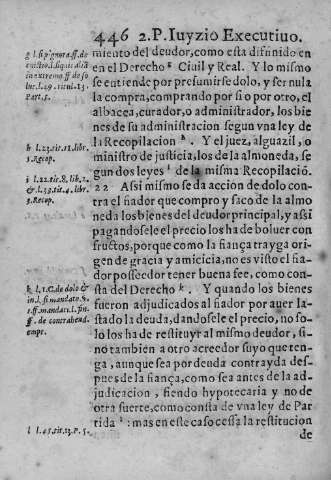 446 2. P. Iuyzio Executiuo.
miento del deudor, como esta difinido en
en el Derecho g Ciuil y Real. Y lo mismo
se entiende por presumirse dolo, y ser nula
la compra, comprando por si o por otro, el
albacea, curador, o administrador, los bie
nes de su administracion segun vna ley de
la Recopilacion h. Y el juez, alguazil, o
ministro de justicia, los de la almoneda, se
gun dos leyes i de la misma Recopilaciõ.
22 Assi mismo se da accion de dolo contra
el fiador que compro y saco de la almo
neda los bienes del deudor principal, y assi
pagandosele el precio los ha de boluer con
fructos, porque como la fiança trayga ori-
gen de gracia y amicicia, no es visto el fia-
dor posseedor tener buena fee, como con-
sta del Derecho k. Y quando los bienes
fueron adjudicados al fiador por auer las-
tado la deuda, dandosele el precio, no so-
lo los ha de restituyr al mismo deudor, si-
no tambien a otro acreedor suyo que ten-
ga, aunque sea por deuda contrayda des-
pues de la fiança, como sea antes de la ad-
judicacion, siendo hypotecaria y no de
otra suerte, como consta de vna ley de Par
tida l: mas en este caso cessa la restitucion
de
g l. si pignora ff. de
in extremo ff. de so
lut. l. 29. titul. 13.
Part. 5.
h l. 23. tit. 11. libr.
5. Recop.
i l. 22. tit. 8. lib. 2.
& l. 39. tit. 4. libr.
3. Recop.
k l. 1. C. de dolo &
in l. si mandato. 59.
ff. de contrahend.
empt.
l l. 45. tit. 13. P. 5.